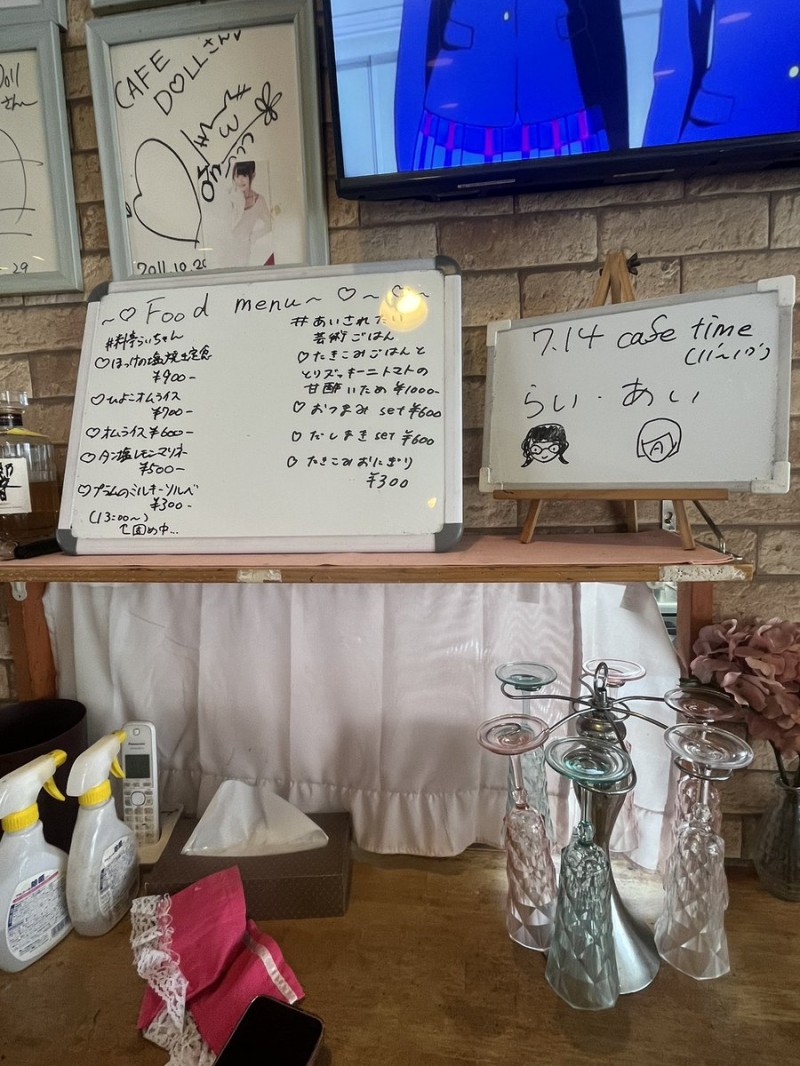 CAFE
DOLLさん♡
2011.10.29
29
~♡Food menu~♡~♡~
#料亭らいちゃん
♡ほっけの塩焼き定食
¥900-
♡ひよこオムライス
¥700-
♡オムライス¥600-
♡タン塩レモンマリネ
¥500-
♡プラムのミルキーソルベ
¥300-
(13:00~)
↑固め中...
#あいされたい
芸術ごはん
♡たきこみごはんと
とりズッキーニトマトの
甘酢いため ¥1000-
♡おつまみ set ¥600
♡だしまき set ¥600
♡たきこみおにぎり
¥300
7.14 cafe time
らい・あい
Panasonic